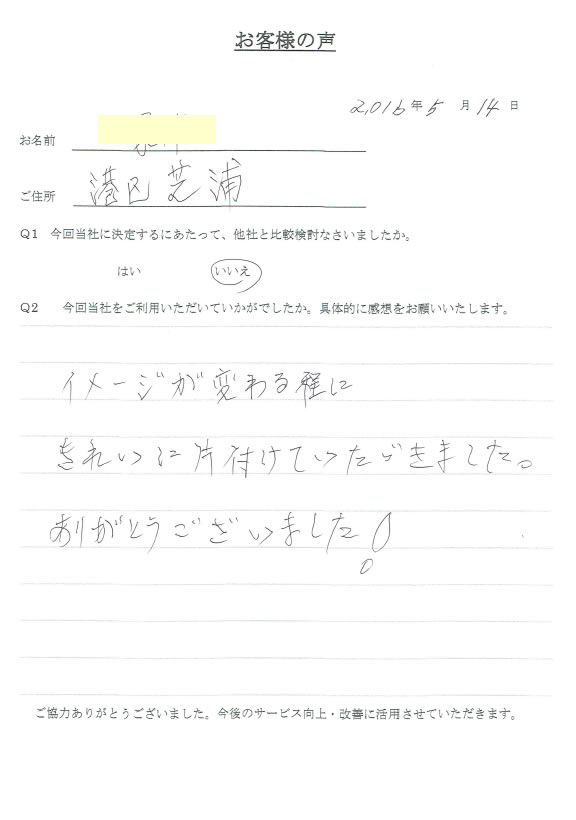 お客様の声
2016年5月14日
お名前
ご住所 港区芝浦
Q1 今回当社に決定するにあたって、他社と比較検討なさいましたか。
はい いいえ
Q2 今回当社をご利用いただいていかがでしたか。具体的に感想をお願いいたします。
イメージが変わる程に
きれいに片付けていただきました。
ありがとうございました!
ご協力ありがとうございました。今後のサービス向上・改善に活用させていただきます。